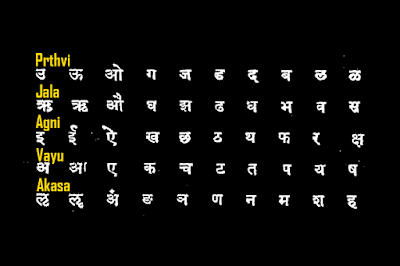 Prthvi
उ ऊ ओ ग ज ड द ब ल ळ
Jala
ऋ ॠ औ घ झ ढ ध भ व स
Agni
इ ई ऐ ख छ ठ थ फ र क्ष
Vayu
अ आ ए क च ट त प य ष
Akasa
ऌ ॡ अँ ङ ञ ण न म श ह